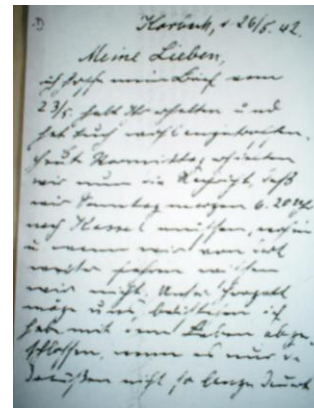 1)
Korbach, d 26/5. 42.
Meine Lieben,
ich hoffe mein Brief vom
23/5. habt Ihr erhalten und
hat Euch wohl angetroffen.
Heute Vormittag erhielten
wir nun die Nachricht, daß
wir Sonntag morgen 6.20 Uhr
nach Kassel müssen, wohin
u wann wir von dort
weiter fahren wissen
wir nicht. Unser
möge uns ich
habe mit dem Leben abge-
schlossen, wenn es nur
nicht so lange dauert